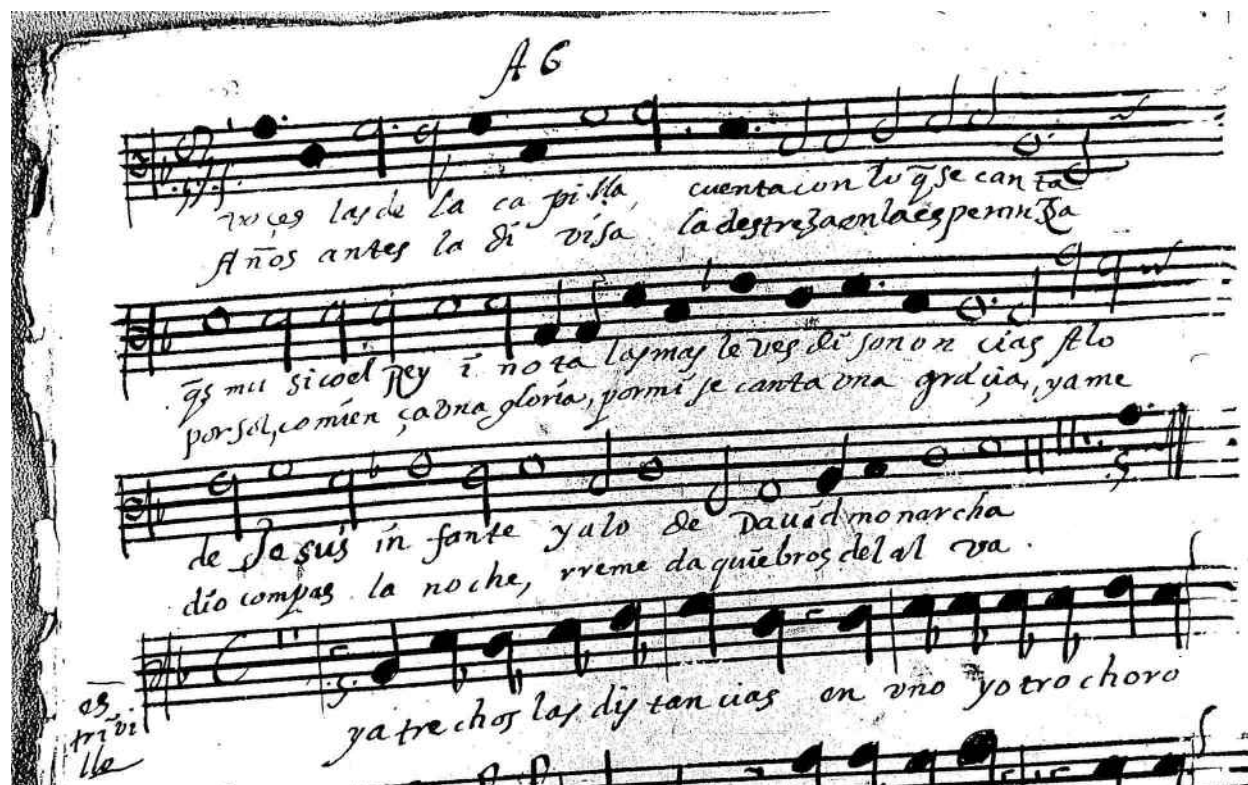 A 6
voçes las de la capilla, cuenta con lo q̃ se canta
Años antes la di visa la destreza en la esperança
q̃s mu sico el Rey i nota las mas leves disonon cias Alo
por sol, comien ça vna gloria, por mi se canta vna graçia, ya me
de Jesus in fante y alo de Dauid monarcha
dio compas la noche, rreme da quiebros del al va.
es
tri vi
llo
ya trechos las dis tan cias en vno y otro choro